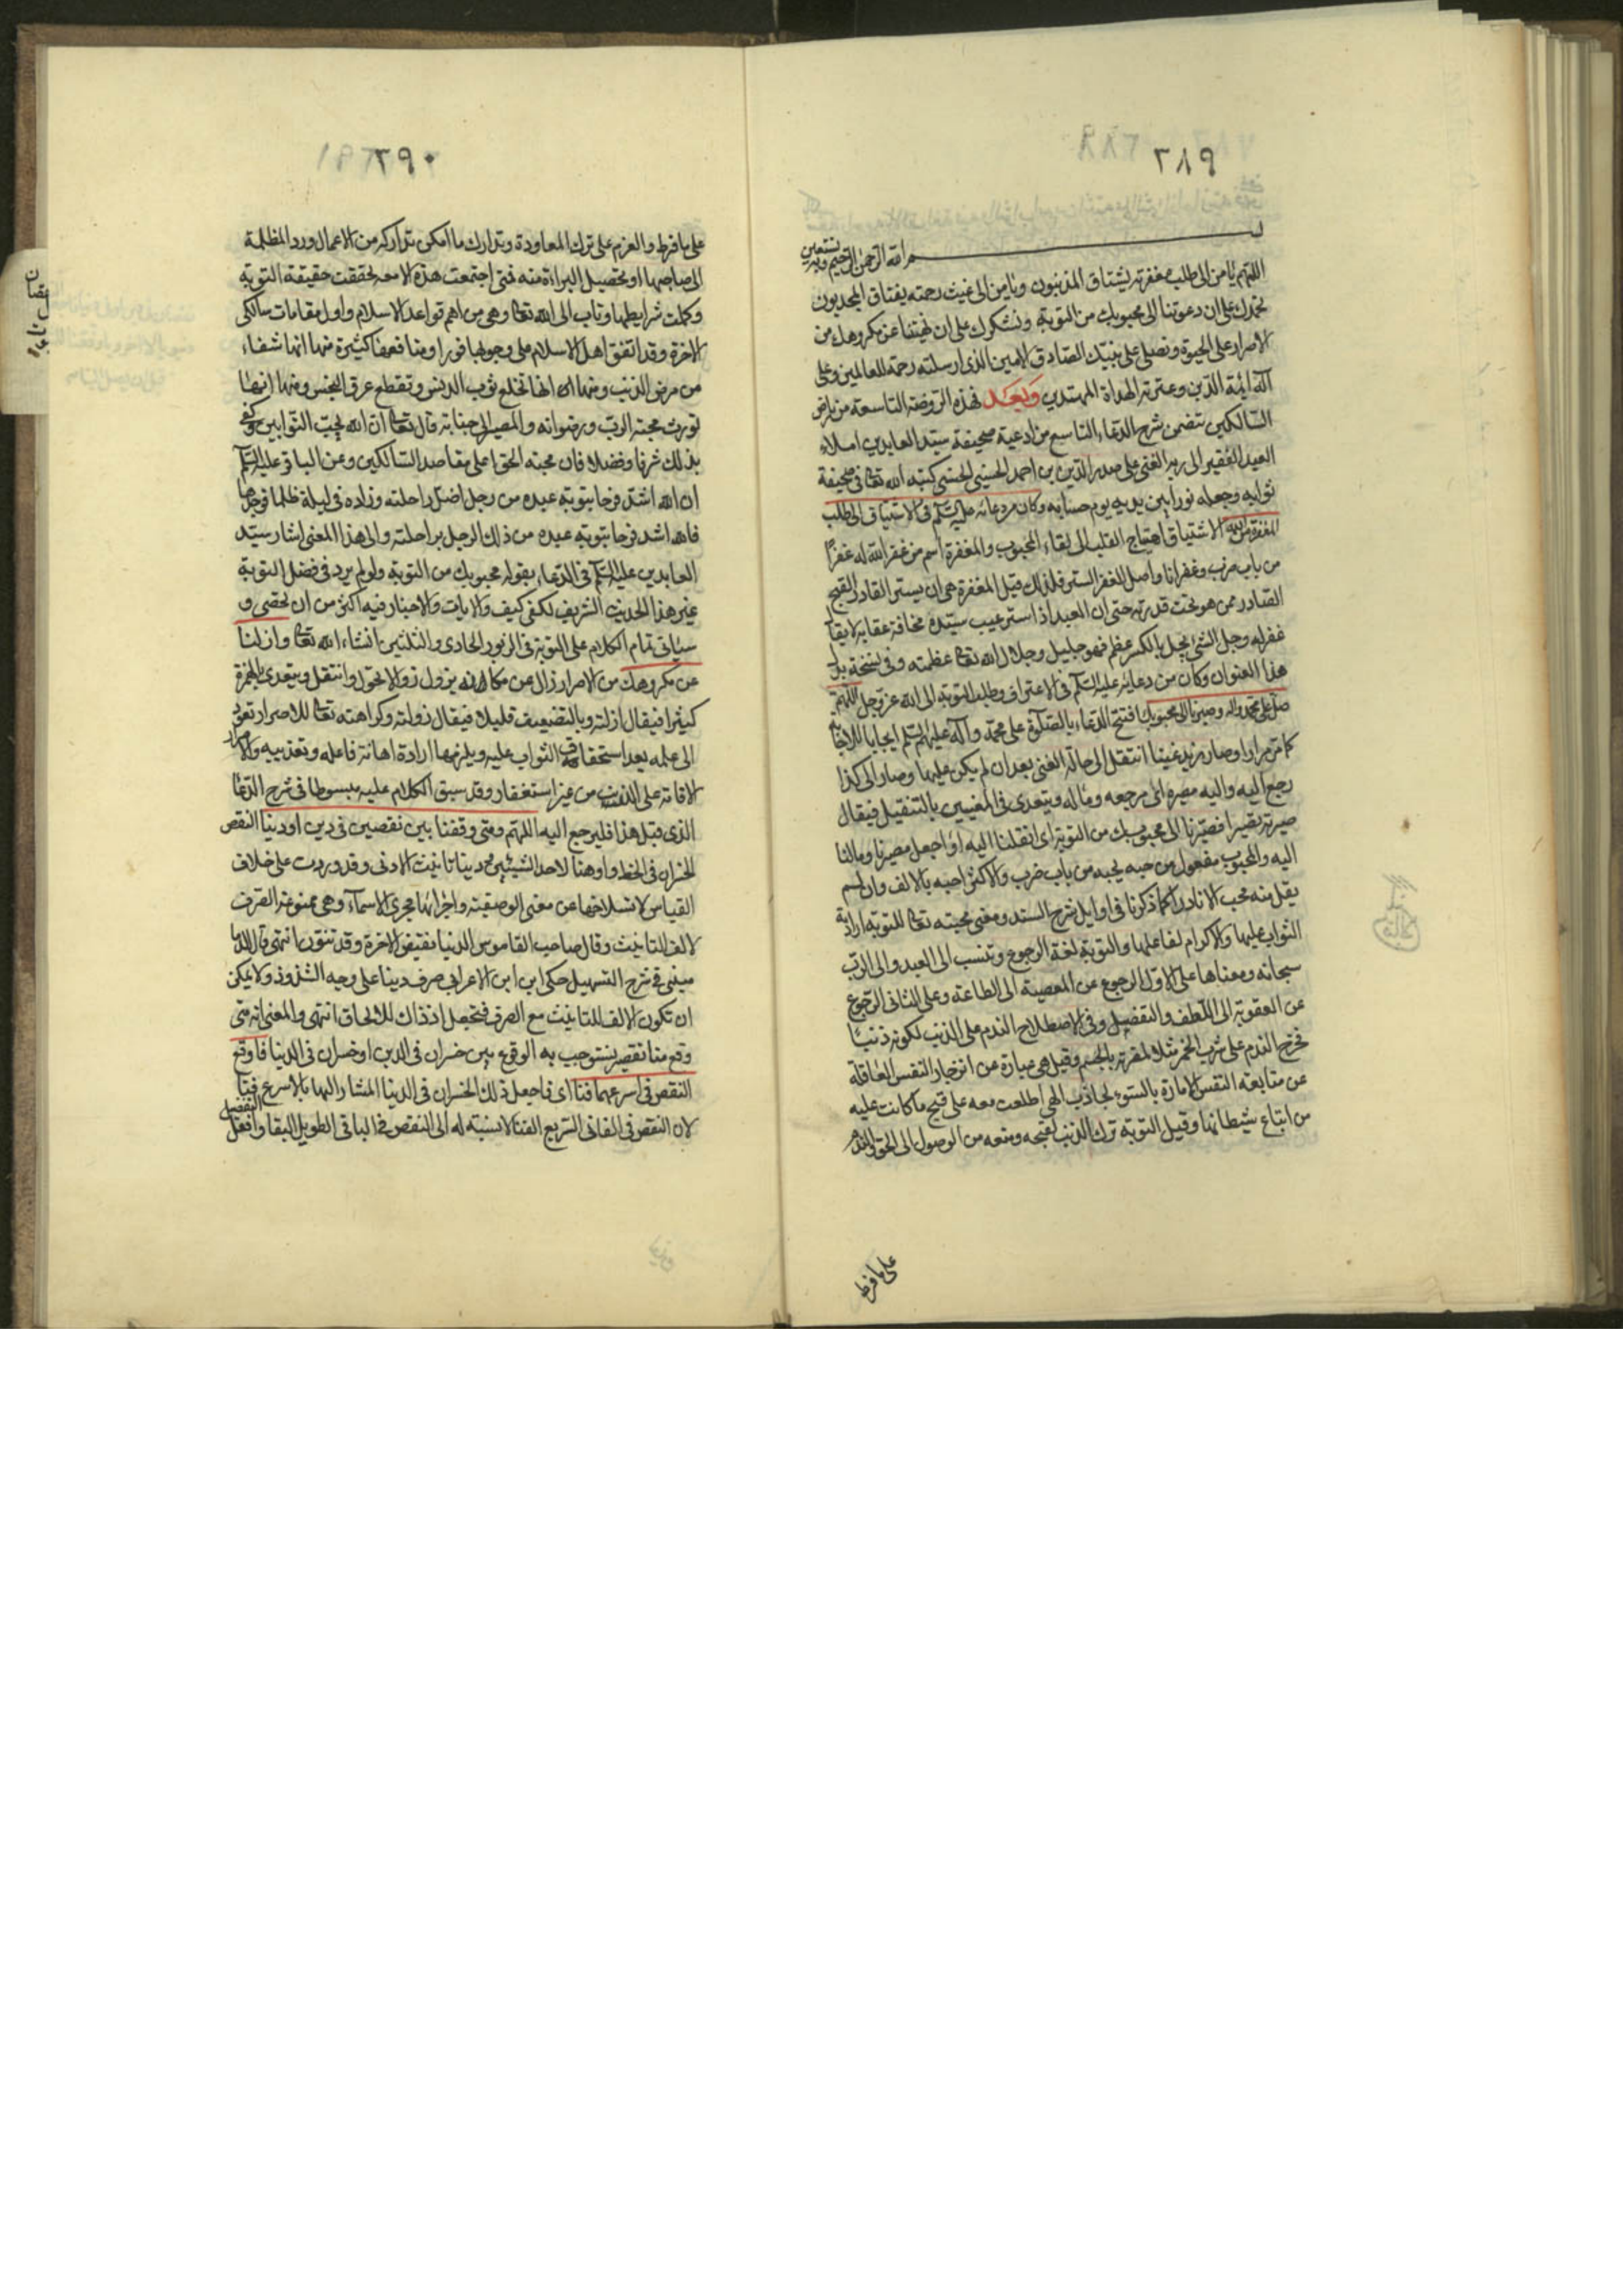 ٢٨٩
بسم الله الرحمن الرحيم وبه نستعين
اللهم يا من الى طلب مغفرته يشتاق المذنبون ويا من الى غيث رحمته يفتاق المجدبون
نحمدك على ان دعوتنا الى محبوبك من التوبة ونشكرك على ان نهيتنا عن مكروهك من
الاصرار على الحيوة ونصلى على نبيك الصادق الامين الذى ارسلته رحمة للعالمين وعلى
آله ائمة الدين وعترته الهداة المهتدين وبعد فهذه الروضة التاسعة من رياض
السالكين تتضمن شرح الدعاء التاسع من ادعية صحيفة سيد العابدين املاء
العبد الفقير الى ربه الغنى على صدر الدين بن احمد الحسينى الحسنى كتبه الله تعالى فى صحيفة
ثوابه وجعله نورا بين يديه يوم حسابه وكان من دعائه عليه السلم فى الاشتياق الى طلب
المغفرة من الله الاشتياق اهتياج القلب الى لقاء المحبوب والمغفرة اسم من غفر الله له غفرًا
من باب ضرب وغفرانا واصل الغفر الستر فلذلك قيل المغفرة هى ان يستر القادر القبيح
الصادر ممن هو تحت قدرته حتى ان العبد اذا ستر عيب سيده مخافة عقابه لا يقال
غفر له وجل الشئ يجل بالكسر عظم فهو جليل وجلال الله تعالى عظمته وفى نسخة بدل
هذا العنوان وكان من دعائه عليه السلم فى الاعتراف وطلب التوبة الى الله عز وجل اللهم
صل على محمد واله وصيرنا الى محبوبك افتتح الدعاء بالصلوة على محمد وآله عليهم السلم ايجابا للاجابة
كما مر مرارا وصار زيد غنيا انتقل الى حالة الغنى بعد ان لم يكن عليها وصار الى كذا
رجع اليه واليه مصيره اى مرجعه ومآله ويتعدى فى المعنيين بالتثقيل فيقال
صيرته تصييرا فصيرنا الى محبوبك من التوبة اى انقلنا اليه او اجعل مصيرنا ومآلنا
اليه والمحبوب مفعول من حبه يحبه من باب ضرب والاكثر احبه بالالف وان لم
يقل منه محب الا نادرا كما ذكرنا فى اوايل شرح السند ومعنى محبته تعالى للتوبة ارادة
الثواب عليها والاكرام لفاعلها والتوبة لغة الرجوع وتنسب الى العبد والى الرب
سبحانه ومعناها على الاول الرجوع عن المعصية الى الطاعة وعلى الثانى الرجوع
عن العقوبة الى اللطف والتفضل وفى الاصطلاح الندم على الذنب لكونه ذنبًا
فخرج الندم على شرب الخمر مثلا لمضرته بالجسم وقيل هى عبارة عن انزجار النفس العاقلة
عن متابعة النفس الامارة بالسوء لجاذب الهى اطلعت معه على قبح ما كانت عليه
من اتباع شيطانها وقيل التوبة ترك الذنب لقبحه ومنعه من الوصول الى الحق والندم
على ما فرط
٢٩٠
على ما فرط والعزم على ترك المعاودة وتدارك ما امكن تداركه من الاعمال ورد المظلمة
الى صاحبها او تحصيل البراءة منه فمتى اجتمعت هذه الامعه تحققت حقيقة التوبة
وكملت شرايطها وتاب الى الله تعالى وهى من اهم قواعد الاسلام واول مقامات سالكى
الاخرة وقد اتفق اهل الاسلام على وجوبها فورا ومنافعها كثيرة منها انها شفاء
من مرض الذنب ومنها انها تخلع ثوب الدنس وتقطع عرق النجس ومنها انها
تورث محبة الرب ورضوانه والمصير الى جنابه قال تعالى ان الله يحب التوابين وكفى
بذلك شرفا وفضلا فان محبة الحق اعلى مقاصد السالكين وعن الباقر عليه السلم
ان الله اشد فرحا بتوبة عبده من رجل اضل راحلته وزاده فى ليلة ظلماء فوجدها
فالله اشد فرحا بتوبة عبده من ذلك الرجل براحلته والى هذا المعنى اشار سيد
العابدين عليه السلم فى الدعاء بقوله محبوبك من التوبة ولو لم يرد فى فضل التوبة
غير هذا الحديث الشريف لكفى كيف والايات والاخبار فيه اكثر من ان تحصى و
سياتى تمام الكلام على التوبة فى الزبور الحادى والثلثين انشاء الله تعالى وازلنا
عن مكروهك من الاصرار زال عن مكانه يزول زوالا تحول وانتقل ويتعدى بالهمزة
كثيرا فيقال ازلته وبالتضعيف قليلا فيقال زولته وكراهته تعالى للاصرار تعود
الى علمه بعد استحقاق الثواب عليه ويلزمها ارادة اهانة فاعله وتعذيبه والاصرار
الاقامة على الذنب من غير استغفار وقد سبق الكلام عليه مبسوطا فى شرح الدعاء
الذى قبل هذا فليرجع اليه اللهم ومتى وقفنا بين نقصين فى دين او دنيا النقص
الخسران فى الحظ واو هنا لاحد الشيئين ودنيا تانيث الادنى وقد وردت على خلاف
القياس لانسلاخها عن معنى الوصفية واجرائها مجرى الاسماء وهى ممنوعة الصرف
لالف التانيث وقال صاحب القاموس الدنيا نقيض الاخرة وقد تنون انتهى قال الدما
مينى فى شرح التسهيل حكى ابن الاعرابى صرف دنيا على وجه الشذوذ ولا يمكن
ان تكون الالف للتانيث مع الصرف فتجعل اذ ذاك للالحاق انتهى والمعنى انه متى
وقع منا تقصير نستوجب به الوقوع بين خسران فى الدين او خسران فى الدنيا فاوقع
النقص فى اسرعهما فناء اى فاجعل ذلك الخسران فى الدنيا المشار اليها بالاسرع فناء
لان النقص فى الفانى السريع الفناء لا نسبة له الى النقص فى الباقى الطويل البقاء وافعل التفضيل